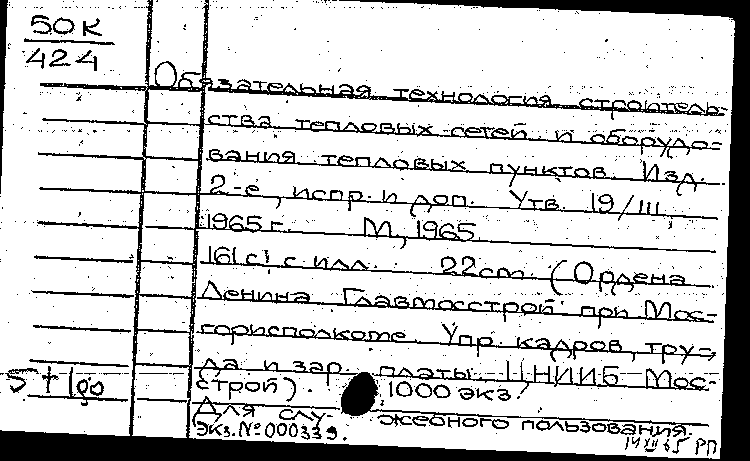 50К
424
Обязательная технология строитель-
ства тепловых сетей и оборудо-
вания тепловых пунктов. Изд.
2-е, испр. и доп. Утв. 19/III
1965 г. М., 1965.
161 с. с илл. 22 см. (Ордена
Ленина Главмосстрой при Мос-
горисполкоме. Упр. кадров, тру-
да и зар. платы. ЦНИИБ Мос-
строй). 1000 экз.
Для слу- жебного пользования.
Экз. № 000339.